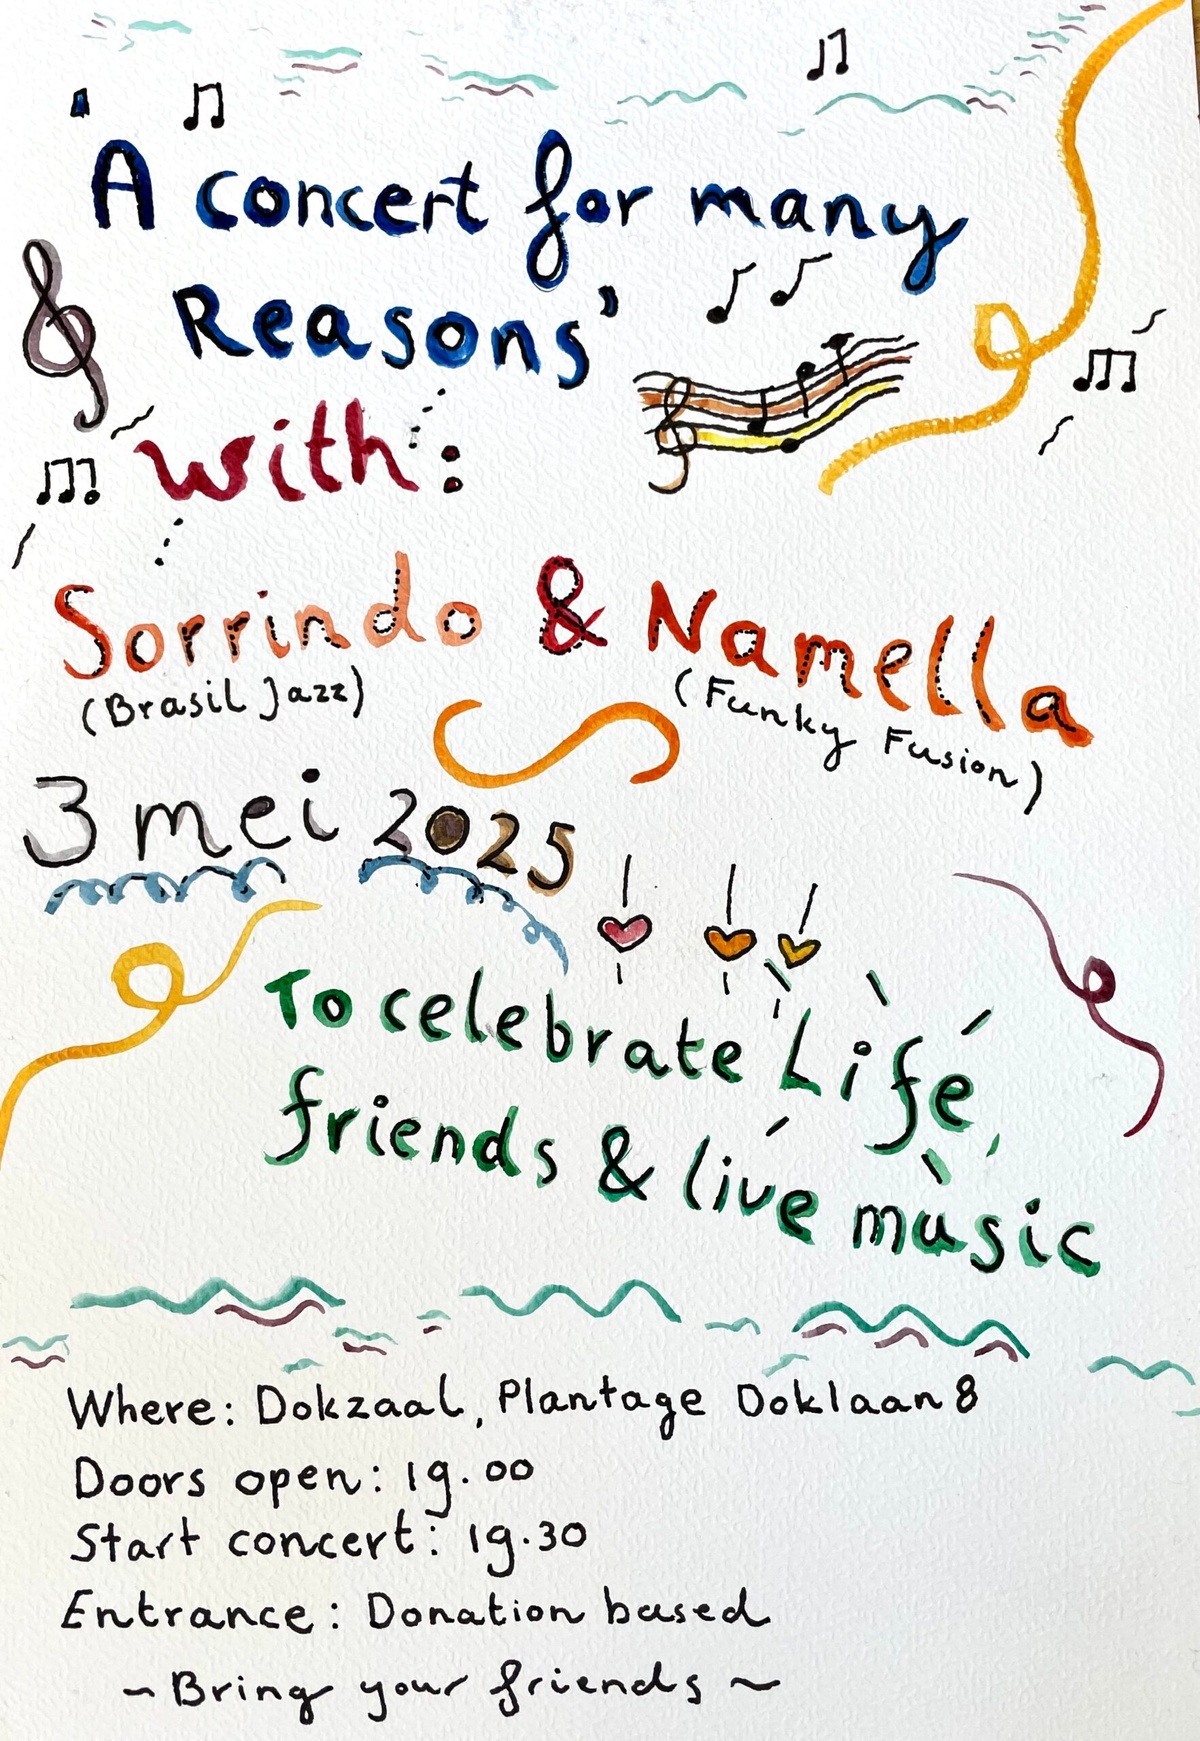 'A concert for many
Reasons'
with:
Sorrindo & Namella
(Brasil Jazz) (Funky Fusion)
3 mei 2025
To celebrate Life
friends & live music
Where: Dokzaal, Plantage Doklaan 8
Doors open: 19.00
Start concert: 19.30
Entrance: Donation based
~ Bring your friends ~